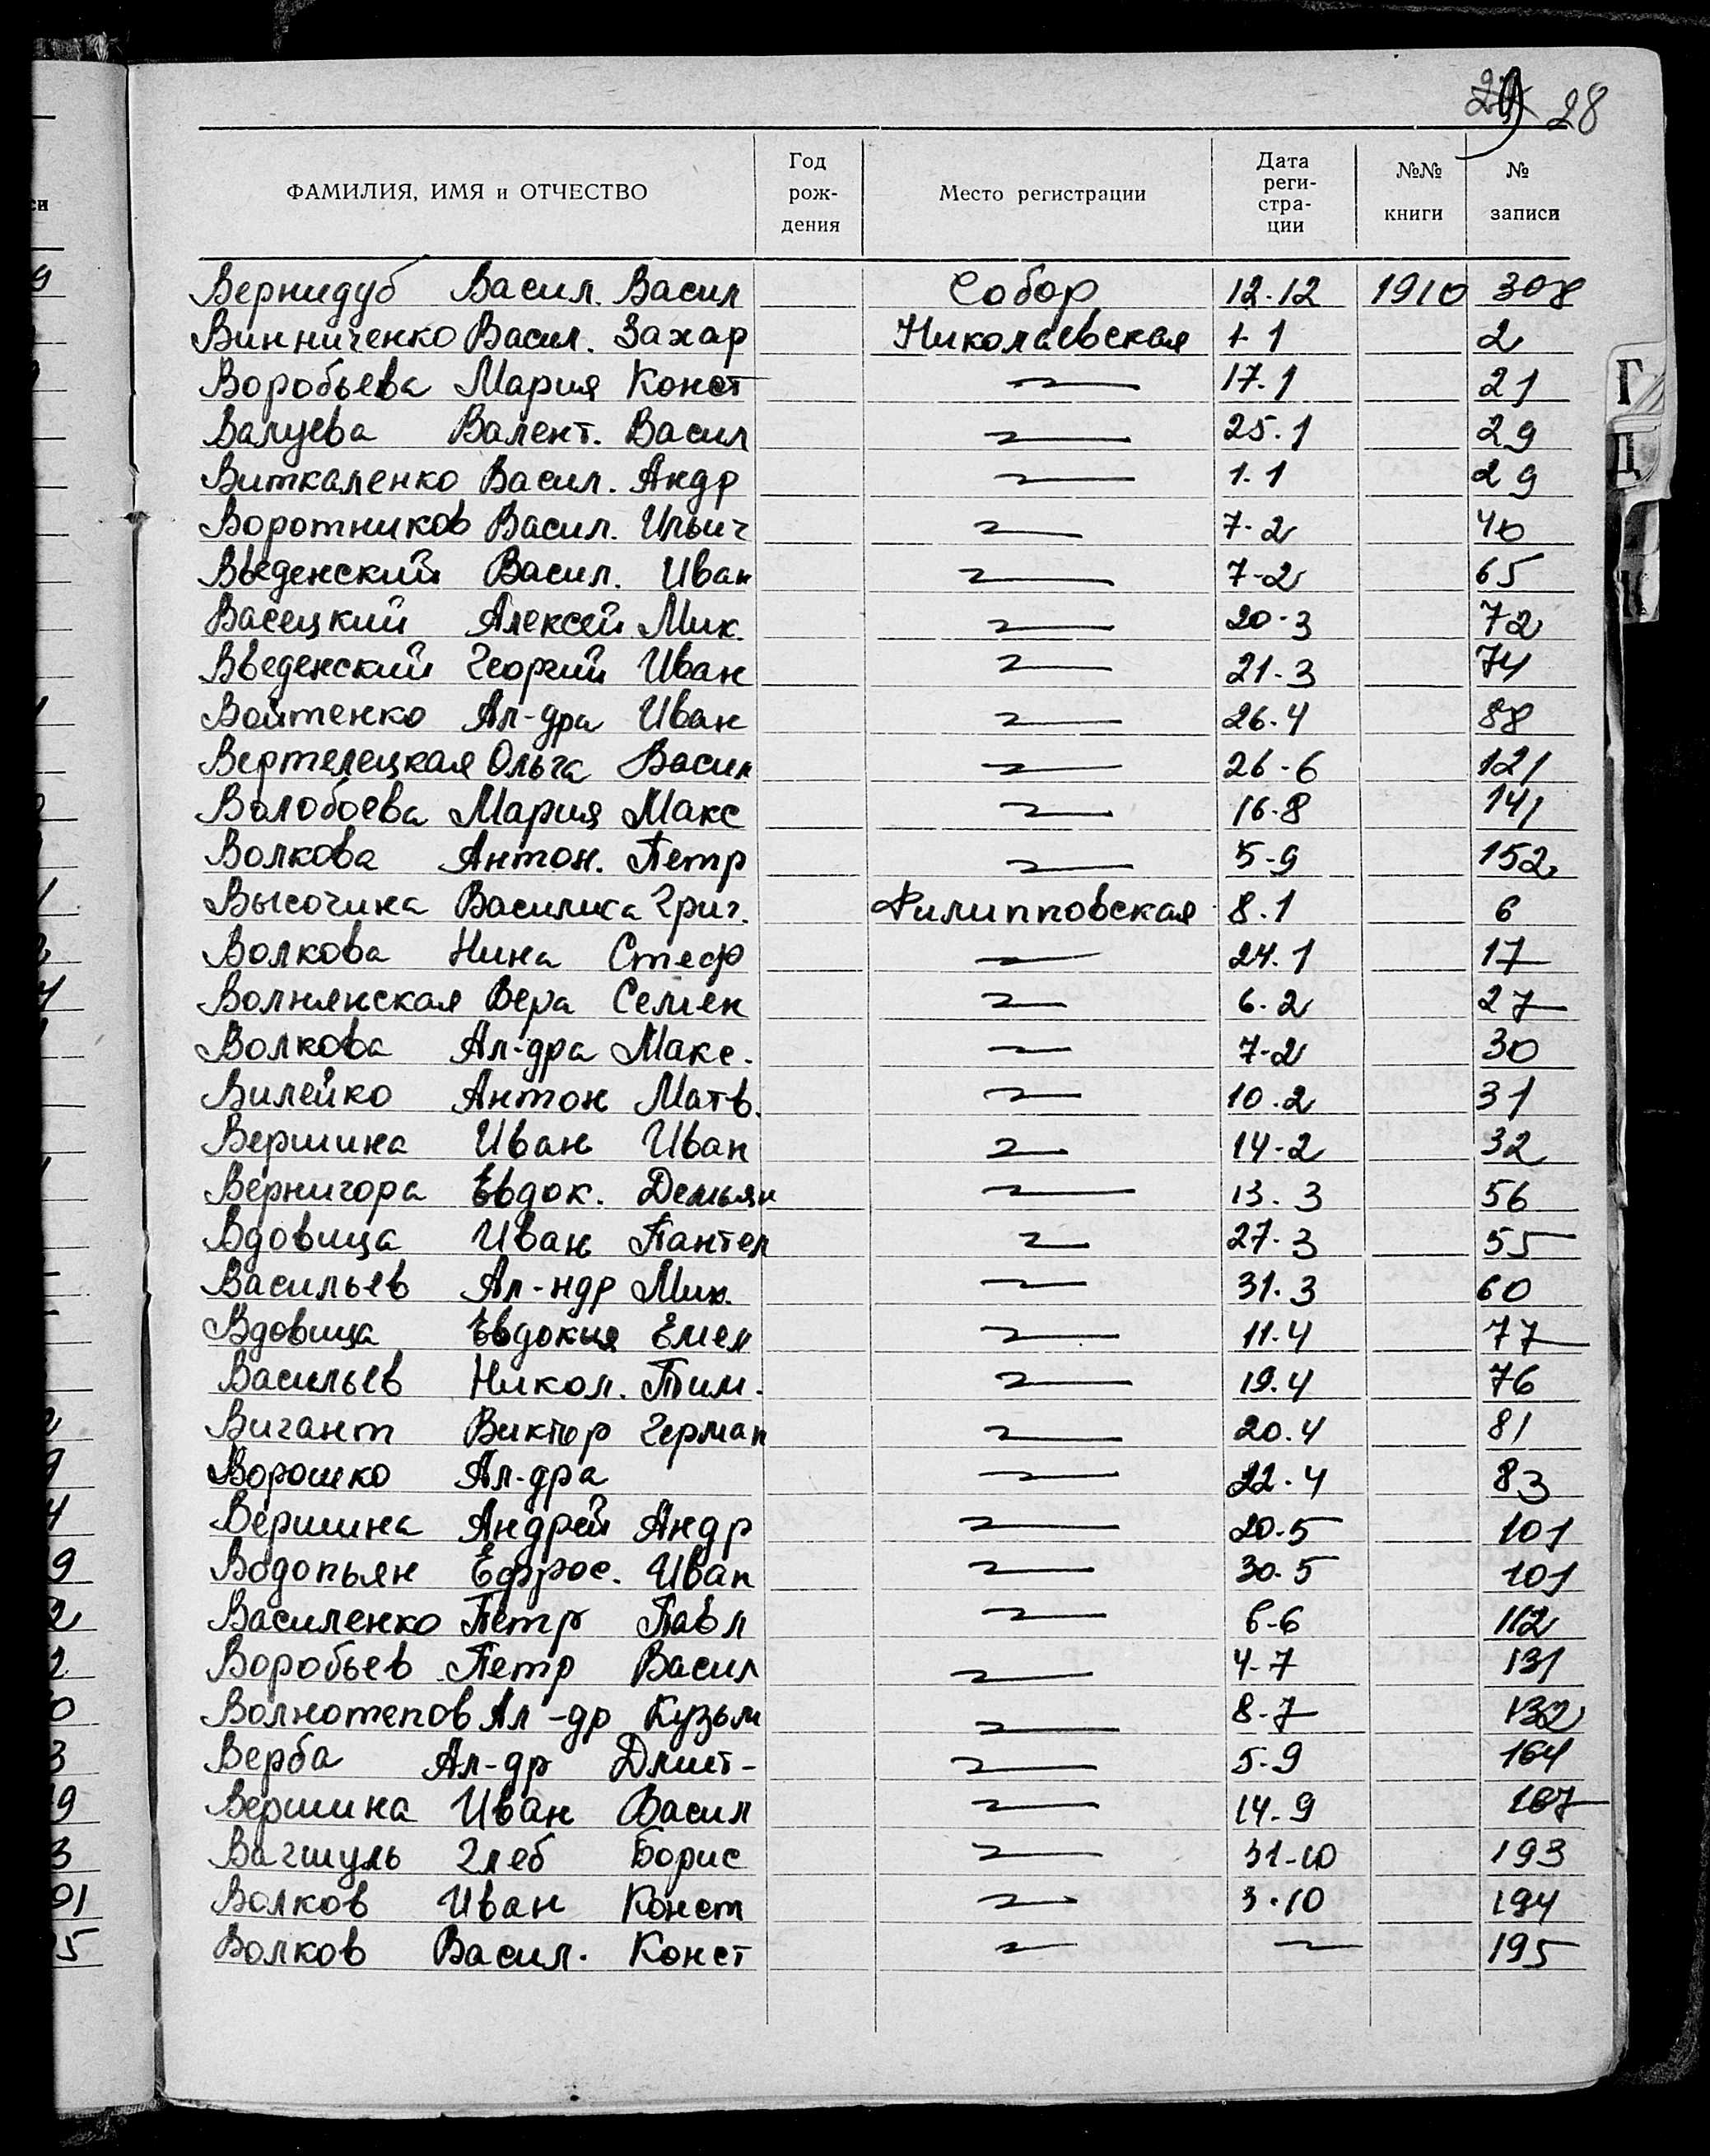 28
ФАМИЛИЯ, ИМЯ и ОТЧЕСТВО Год рождения Место регистрации Дата регистрации №№ книги № записи
Вернидуб Васил. Васил Собор 12.12 1910 308
Винниченко Васил. Захар Николаевская 1 2
Воробьева Мария Конст 〃 17.1 21
Валуева Валент. Васил 〃 25.1 29
Виткаленко Васил. Андр 〃 1.1 29
Воротников Васил. Ильич 〃 7-2 40
Введенский Васил. Иван 〃 7-2 65
Васецкий Алексей Мих. 〃 20-3 72
Введенский Георгий Иван 〃 21-3 74
Войтенко Ал-дра Иван 〃 26.4 88
Вертелецкая Ольга Васил 〃 26-6 121
Волобоева Мария Макс 〃 16-8 141
Волкова Антон. Петр 〃 5-9 152
Высочина Василиса Григ. Филипповская 8.1 6
Волкова Нина Стеф 〃 24.1 17
Волнянская Вера Семен 〃 6.2 27
Волкова Ал-дра Макс. 〃 7-2 30
Вилейко Антон Матв. 〃 10.2 31
Вершина Иван Иван 〃 14-2 32
Вернигора Евдок. Демьян 〃 13.3 56
Вдовица Иван Пантел 〃 27.3 55
Васильев Ал-ндр Мих. 〃 31.3 60
Вдовица Евдокия Емел 〃 11.4 77
Васильев Никол. Тим. 〃 19.4 76
Вигант Виктор Герман 〃 20.4 81
Ворошко Ал-дра 〃 22.4 83
Вершина Андрей Андр 〃 20.5 101
Водопьян Ефрос. Иван 〃 30.5 101
Василенко Петр Павл 〃 6-6 112
Воробьев Петр Васил 〃 4-7 131
Ал-др Кузьм 〃 8-7 132
Верба Ал-др Дмит- 〃 5-9 164
Вершина Иван Васил 〃 14-9 167
Вагшуль Глеб Борис 〃 31-10 193
Волков Иван Конст 〃 3.10 194
Волков Васил. Конст 〃 〃 195
Г
Д